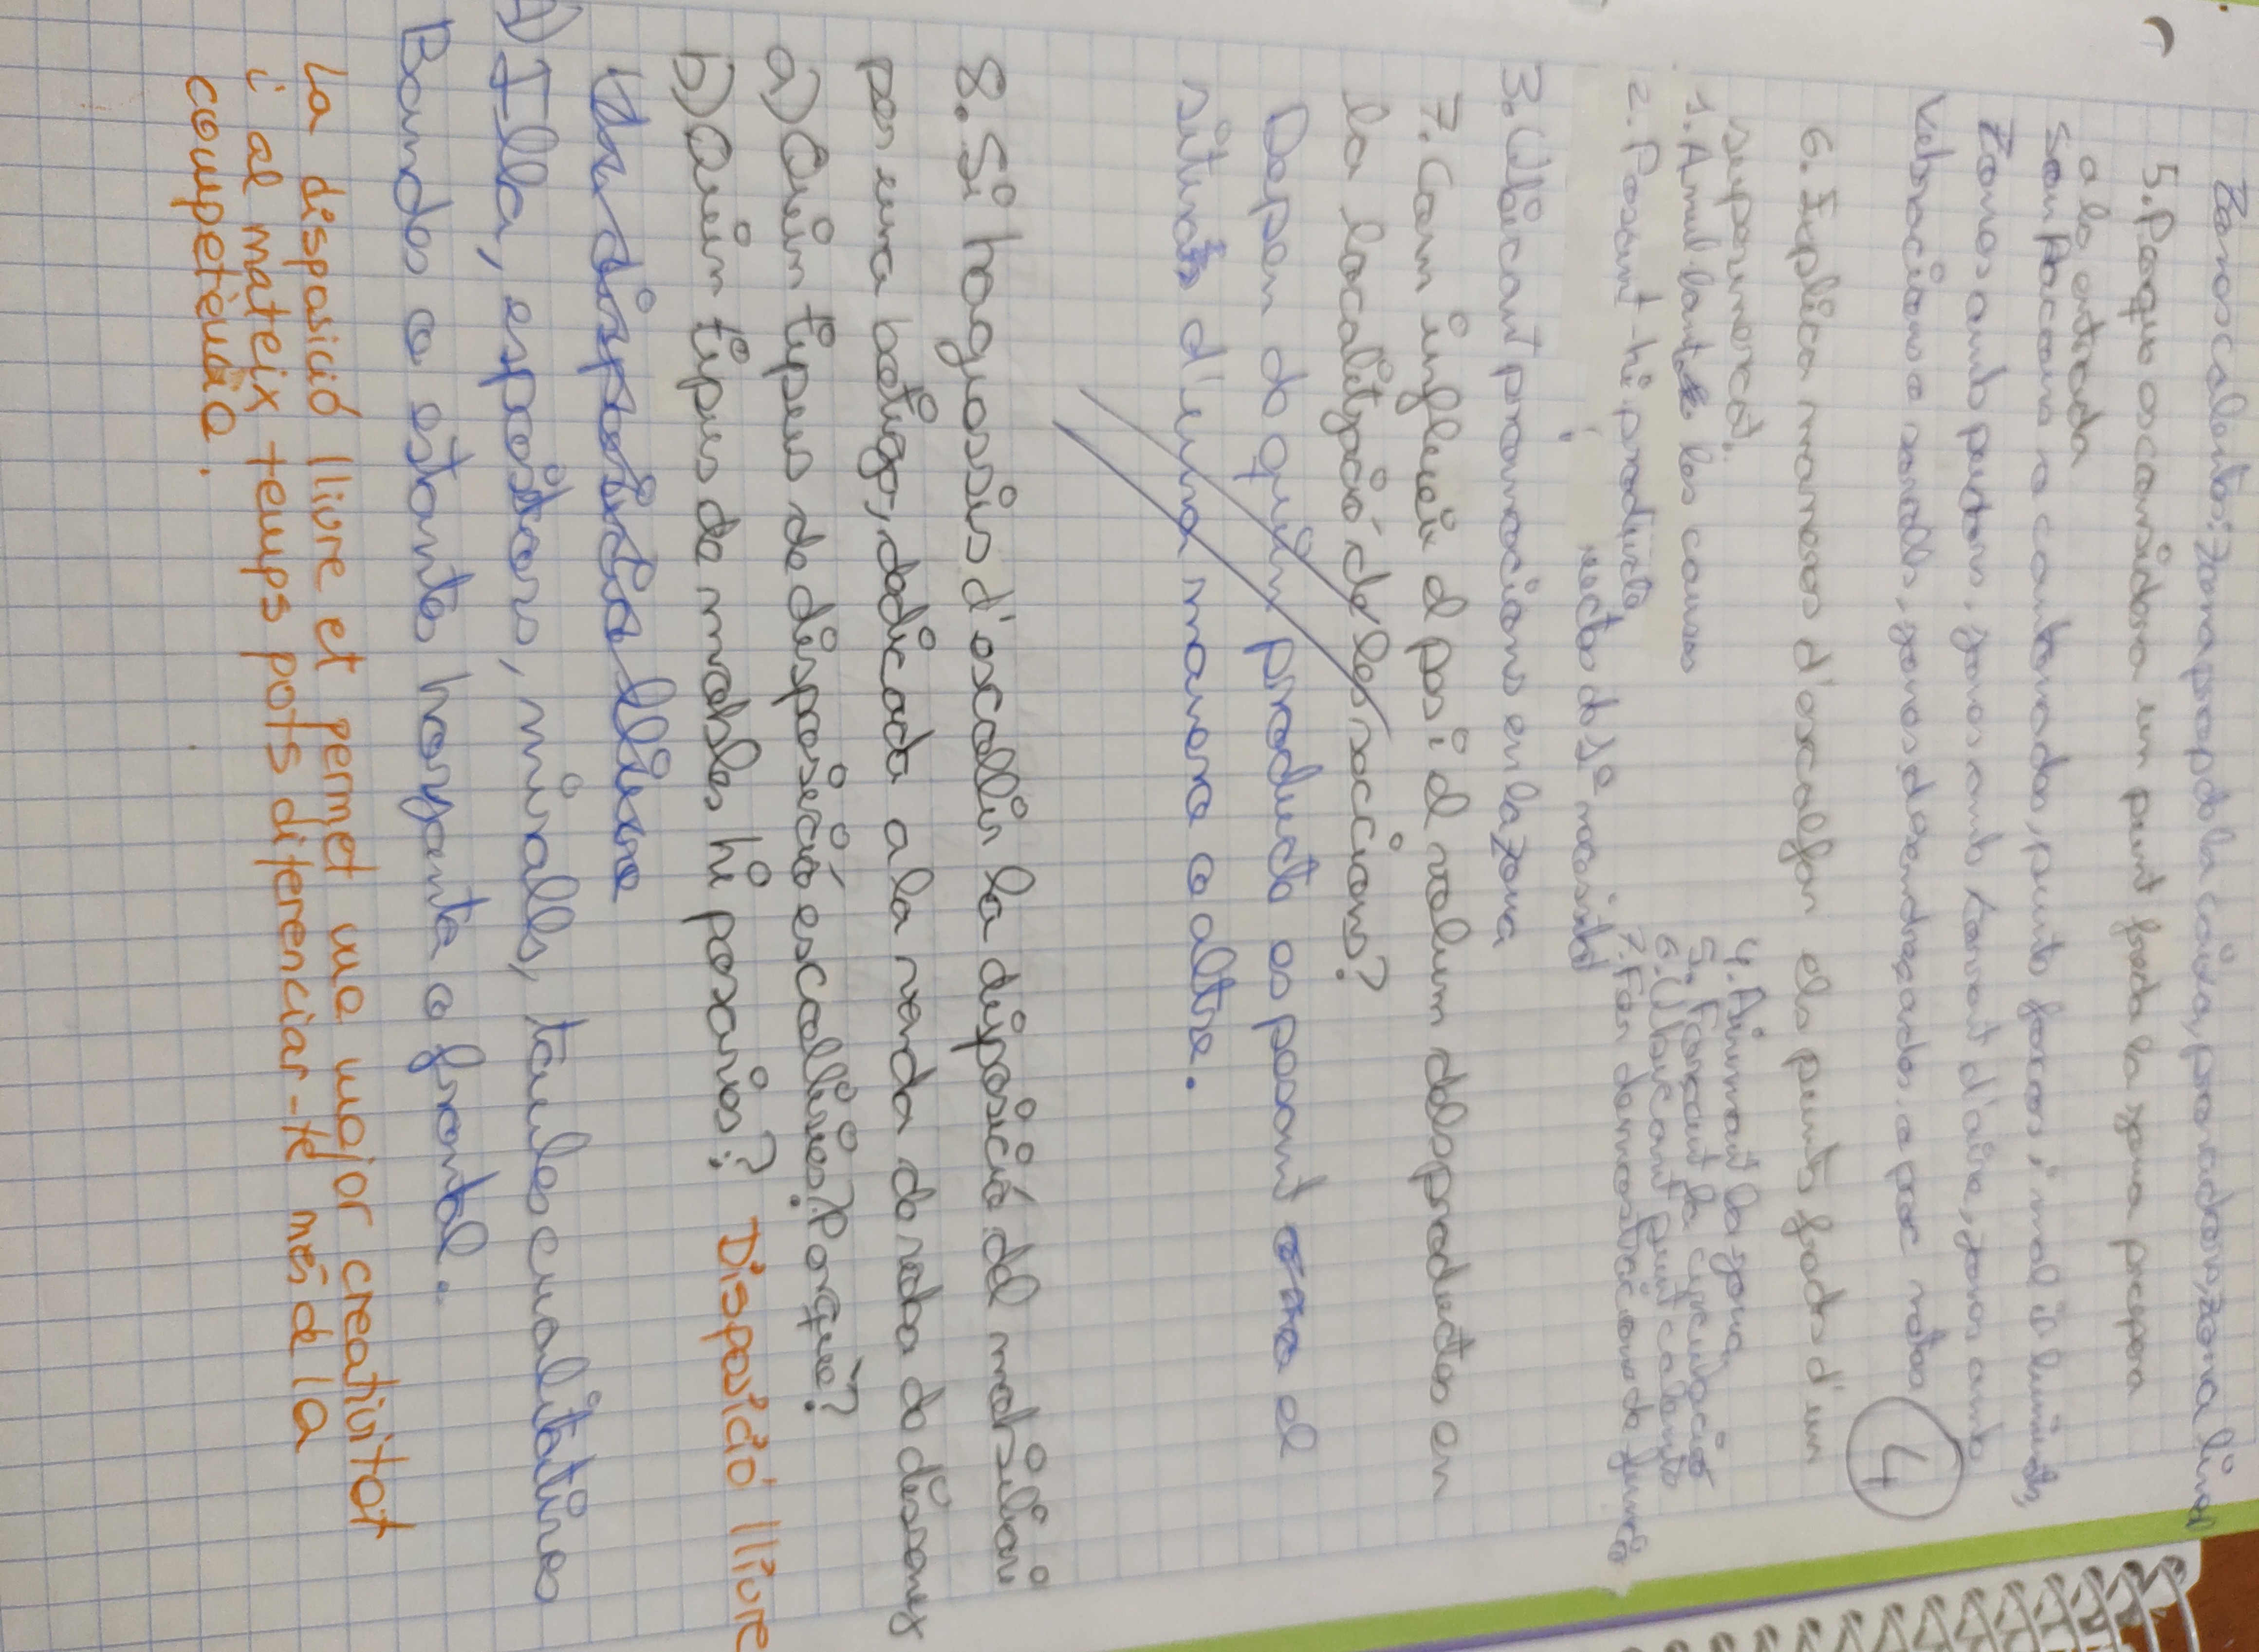 Zones calentes: zona prop de la caixa, provadors, zona lineal
5. Perquè es considera un punt freda la zona propera
a la entrada
són Racons o cantonades, punts foscos i mal il·luminats,
Zones amb pudors, zones amb corrent d'aire, zones amb
Vibracions o soroll, zones desendreçades o poc netes
4
6. Explica maneres d'escalfar els punts freds d'un
supermercat.
1. Amullant les coses
2. Posant-hi producte
nectes de 1º necesitat
3. Ubicant promocions en la zona
4. Animant la zona
5. Forçant la circulació
6. Ubicant punt calents
7. Fer demostracions de funció
7. Com influeix el pes i el volum dels productes en
la localització de les seccions?
Depen de quin producte es posant el
situas d'una manera o altre.
8. Si haguessis d'escollir la disposició del mobiliari
per una botiga, dedicada a la venda de roba de disseny
a) Quin tipus de disposició escolliries? Perquè?
b) Quin tipus de mobles hi posaries?
Disposició lliure
La disposicio lliure
A) Illa, espositors, miralls, taules cualitatives
Bandes o estants horzonta o frontal.
La disposició llivre et permet una major creativitat
i al mateix temps pots diferenciar-te més de la
competència.